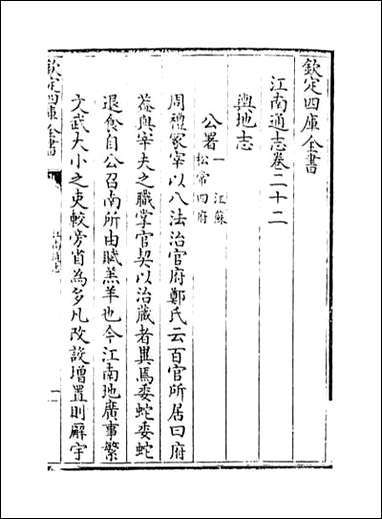 欽定四庫全書
江南通志卷二十二
輿地志
公署一 江蘇松常四府
周禮冢宰以八法治官府鄭氏云百官所居曰府
葢與宰夫之職掌官契以治藏者異焉委蛇委蛇
退食自公召南所由賦羔羊也今江南地廣事繁
文武大小之吏較旁省為多凡改設增置則廨宇
欽定四庫全書
江南通志
一